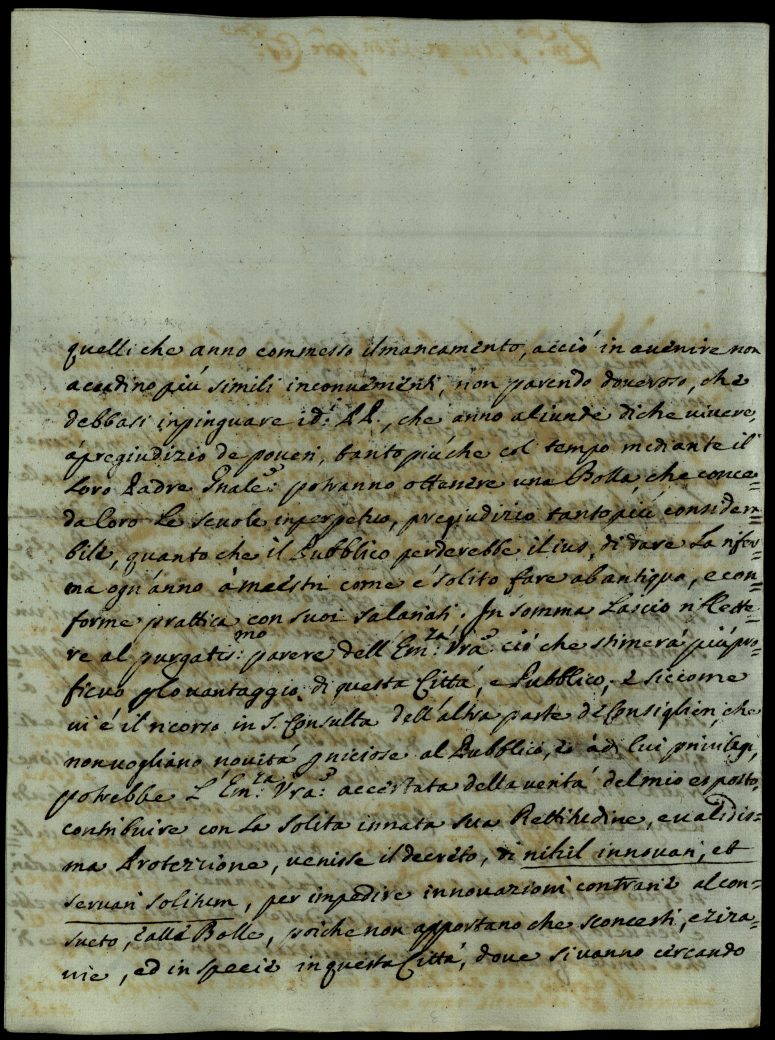 quelli che anno commesso il mancamento, acciò in avenire non
accadino più simili inconvenienti, non parendo doveroso, che
debbasi inpinguare i d.i PP., che anno aliunde di che vivere,
à pregiudizio de poveri, tanto più che col tempo mediante il
loro Padre Gnale: potranno ottenere una Bolla che conce=
da loro le scuole inperpetuo, pregiudizio tanto più considera=
bile, quanto che il Pubblico perderebbe il ius, di dare la rifer=
ma ogn'anno à maestri come è solito fare ab antiquo, e con=
forme prattica con suoi salariati. In somma lascio riflette=
re al purgatis:mo parere dell'Em:za Vra: ciò che stimerà più pro=
ficuo p lo vantaggio di questa Città, e Pubblico, e siccome
vi è il ricorso in S. Consulta dell'altra parte de Consiglieri, che
non vogliono novità pniciose al Pubblico, e à di lui privilegi,
potrebbe l'Em:za Vra: accertata della verità del mio esposto,
contribuire con la solita innata sua Rettitudine, e validis=
ma Protezzione, venisse il decreto, di nihil innovari, et
servari solitum, per impedire innovazioni contrarie al con=
sueto, e alle Bolle, poiche non apportano che sconcerti, e zira=
nie, ed in specie in questa Città, dove si vanno cercando